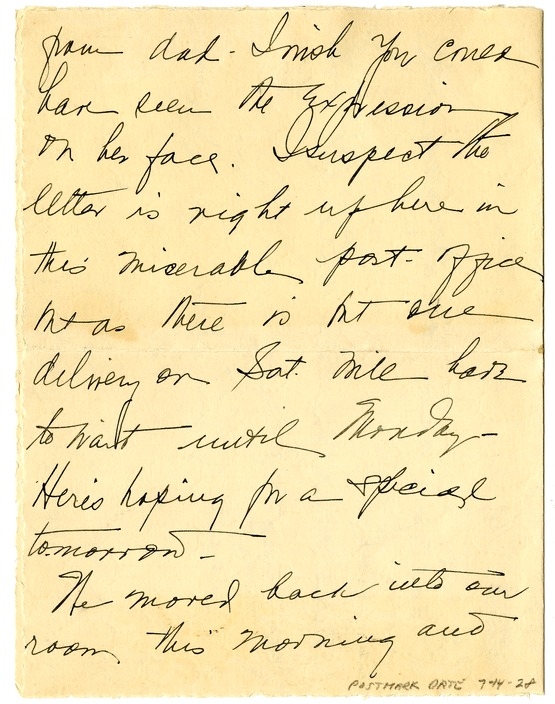 from dad - I wish you could
have seen the expression
on her face. I suspect the
letter is right up here in
this miserable post-office
but as there is but one
delivery on Sat. will have
to wait until Monday -
Here's hoping for a special
tomorrow -
We moved back into our
room this morning and
POSTMARK DATE 7-14-28